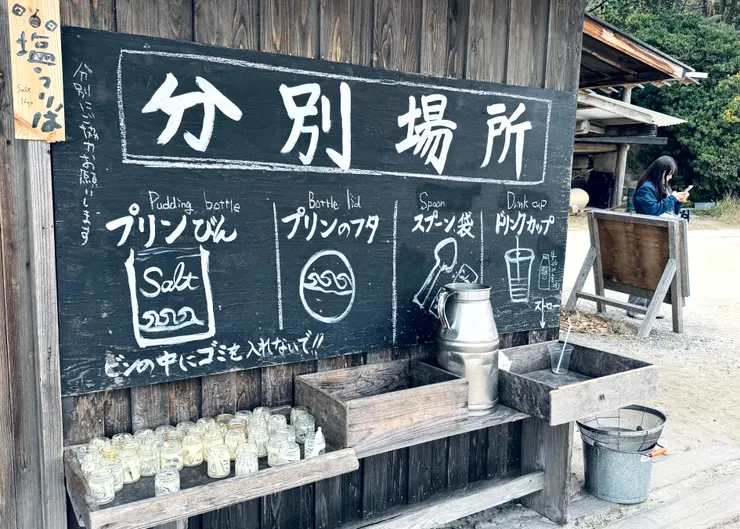 塩うりば
分別場所
分別にご協力お願いします
Pudding bottle
プリンびん
Salt
Bottle lid
プリンのフタ
Spoon
スプーン袋
Drink cup
ドリンクカップ
ストロー
ビンの中にゴミを入れないで!!